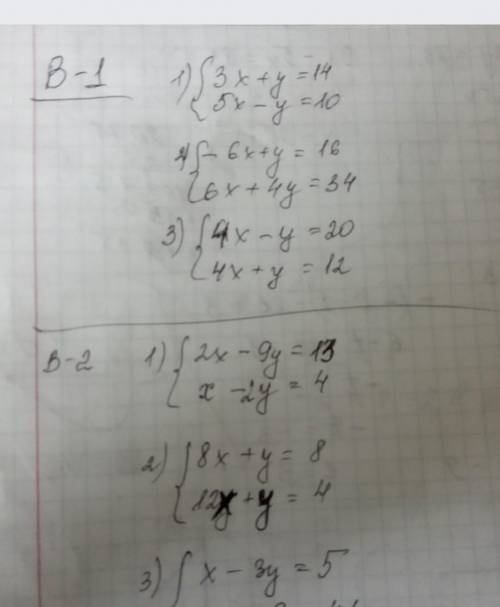 В-1
1) { 3x + y = 14
5x - y = 10
2) { - 6x + y = 16
6x + 4y = 34
3) { 4x - y = 20
4x + y = 12
В-2
1) { 2x - 9y = 13
x - 2y = 4
2) { 8x + y = 8
12x + y = 4
3) { x - 3y = 5